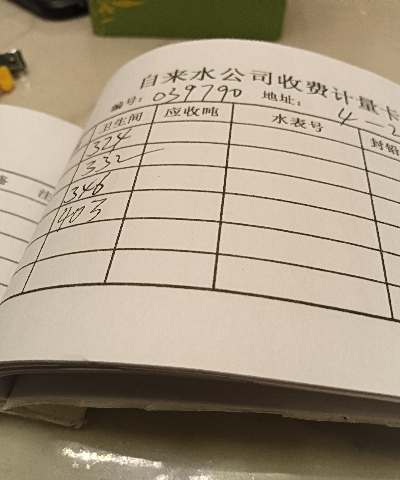 自来水公司收费计量卡
编号: 039790 地址: 4-2
卫生间 应收吨 水表号 封铅
324
332
346
403
备 注